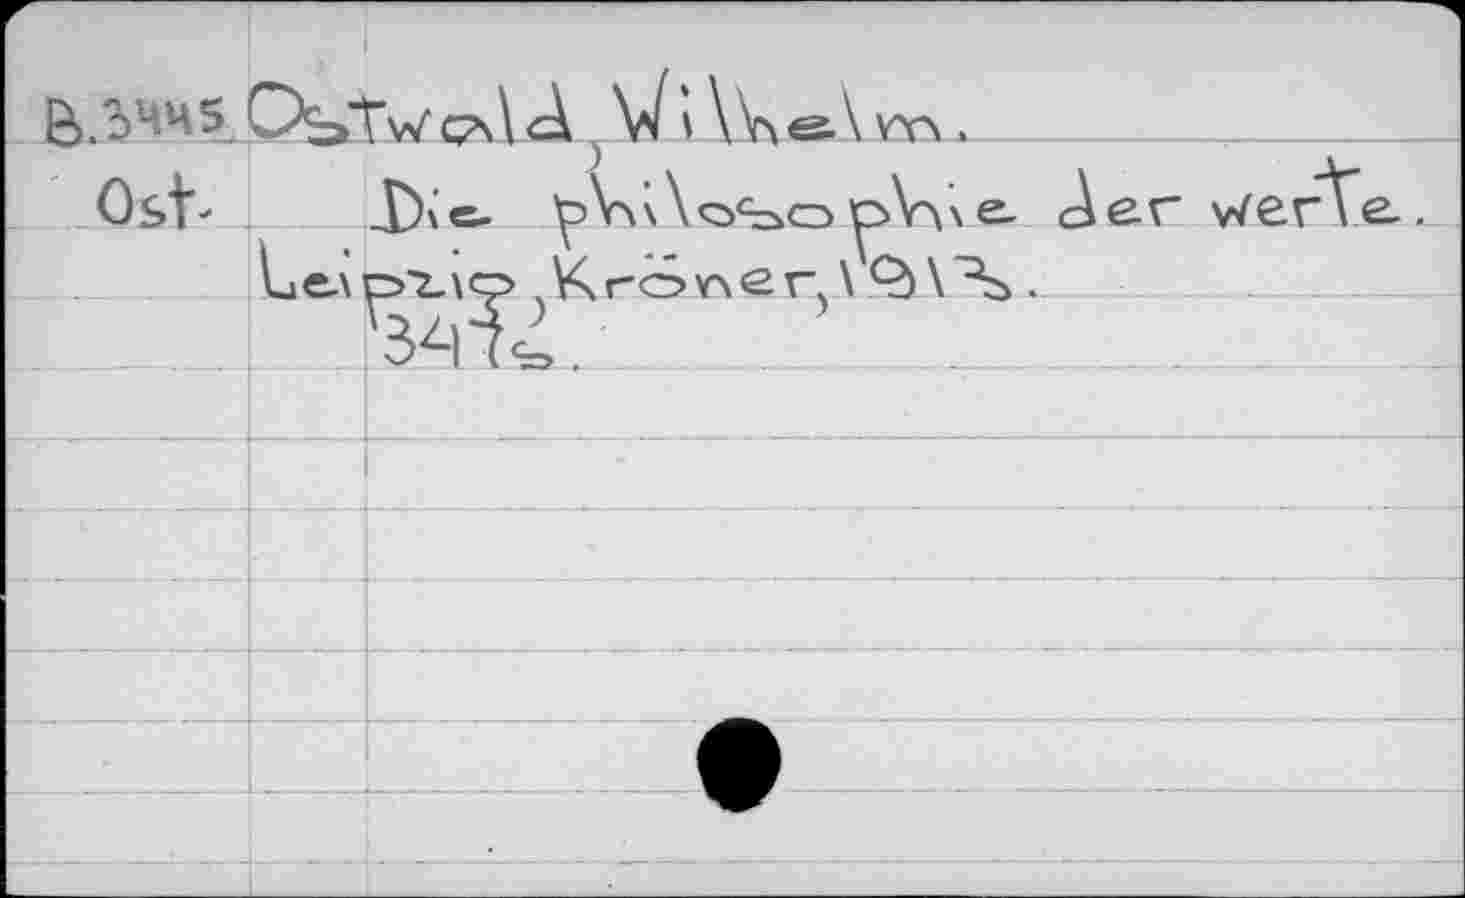 B.3445 Ostwald, Wilhelm.
Ost- Die philosophie der werte.
Leipzig, Kröner, 1913.
347s.